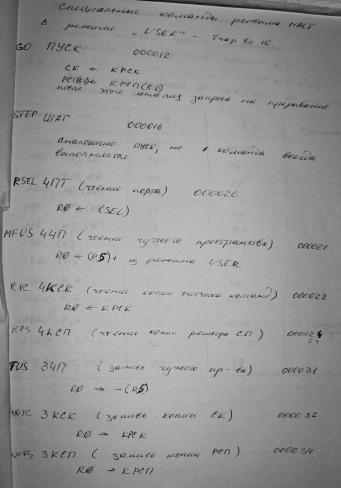 Специальные команды режима HALT
В режиме "USER" - Trap to 10.
GO ПУСК 000012
СК ← КРСК
РСП(8:0) КРСП(8:0)
после этого анализ запроса на прерывание
STEP ШАГ 000016
аналогично пуск, но 1 команда всегда
выполняется
RSEL ЧПТ (чтение порта) 000020
R0 ← (SEL)
MFUS ЧЧП (чтение чужого пространства) 000021
R0 ← (R5)+ из режима USER
RPC ЧКСК (чтение копии счётчика команд) 000022
R0 ← КРСК
RPS ЧКСП (чтение копии регистра СП) 000024
24
TUS ЗЧП (запись чужого пр-ва) 000031
R0 → -(R5)
WPC ЗКСК (запись копии СК) 000032
R0 → КРСК
WPS ЗКСП (запись копии РСП) 000034
R0 → КРСП